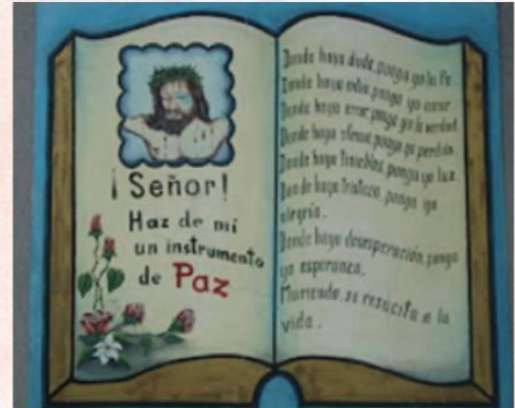 ¡Señor!
Haz de mi
un instrumento
de Paz
Donde haya duda, ponga yo la Fe.
Donde haya odio, ponga yo amor.
Donde haya error, ponga yo la verdad.
Donde haya ofensa, ponga yo perdón.
Donde haya tinieblas, ponga yo luz.
Donde haya tristeza, ponga yo
alegría.
Donde haya desesperación, ponga
yo esperanza.
Muriendo, se resucita a la
vida.